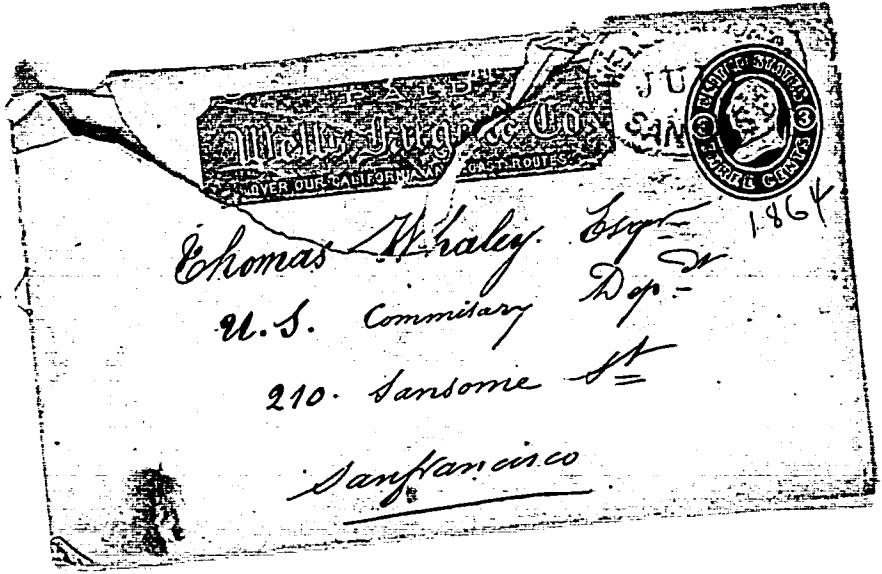 PAID
Wells, Fargo & Co.
OVER OUR CALIFORNIA AND COAST ROUTES.
WELLS, FARGO
JU
SAN
UNITED STATES
3 3
THREE CENTS
1864
Thomas Whaley. Esqr
U.S. Commisary Dept
210. Sansome St
Sanfrancisco